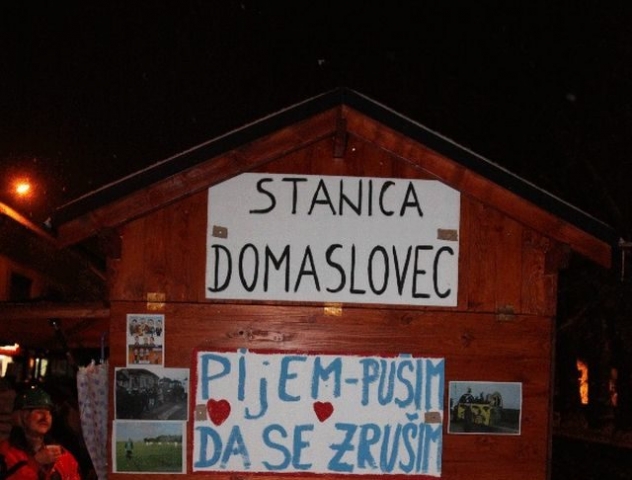 STANICA
DOMASLOVEC
PijEM-PUŠIM
DA SE ZRUŠIM